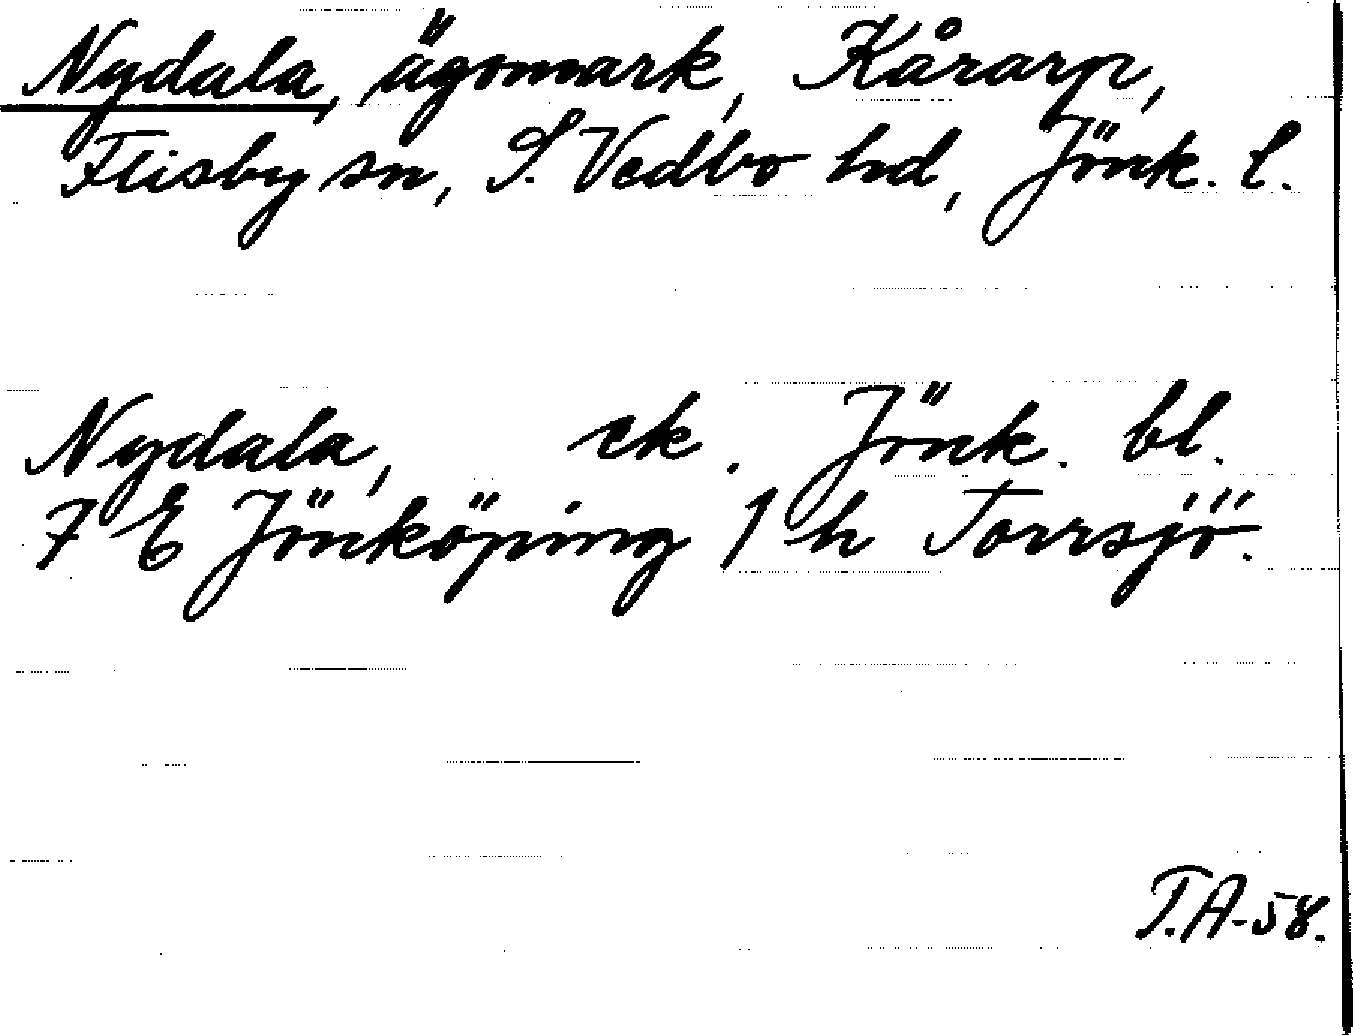 Nydala, ägomark, Kårarp,
Flisby sn, S. Vedbo hd, Jönk. l.
Nydala, ek. Jönk. bl.
7 E Jönköping 1 h Torrsjö.
T.A-58.